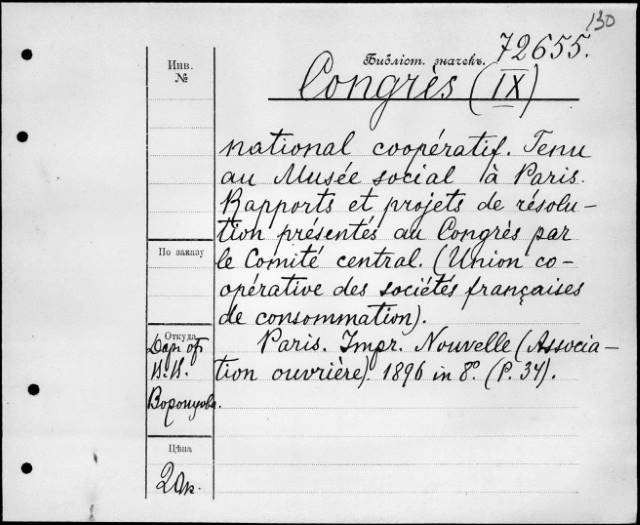 130
Библіот. значекъ. 72655.
Инв.
№
Congrès (IX)
national coopératif. Tenu
au Musée social à Paris.
Rapports et projets de résolu-
tion présentés au Congrès par
le Comité central. (Union co-
opérative des sociétés françaises
de consommation).
Paris. Impr. Nouvelle (Associa-
tion ouvrière). 1896 in 8º. (P. 34).
По заказу
Откуда
Дар от
В. В.
Воронцова.
Цѣна
20к.